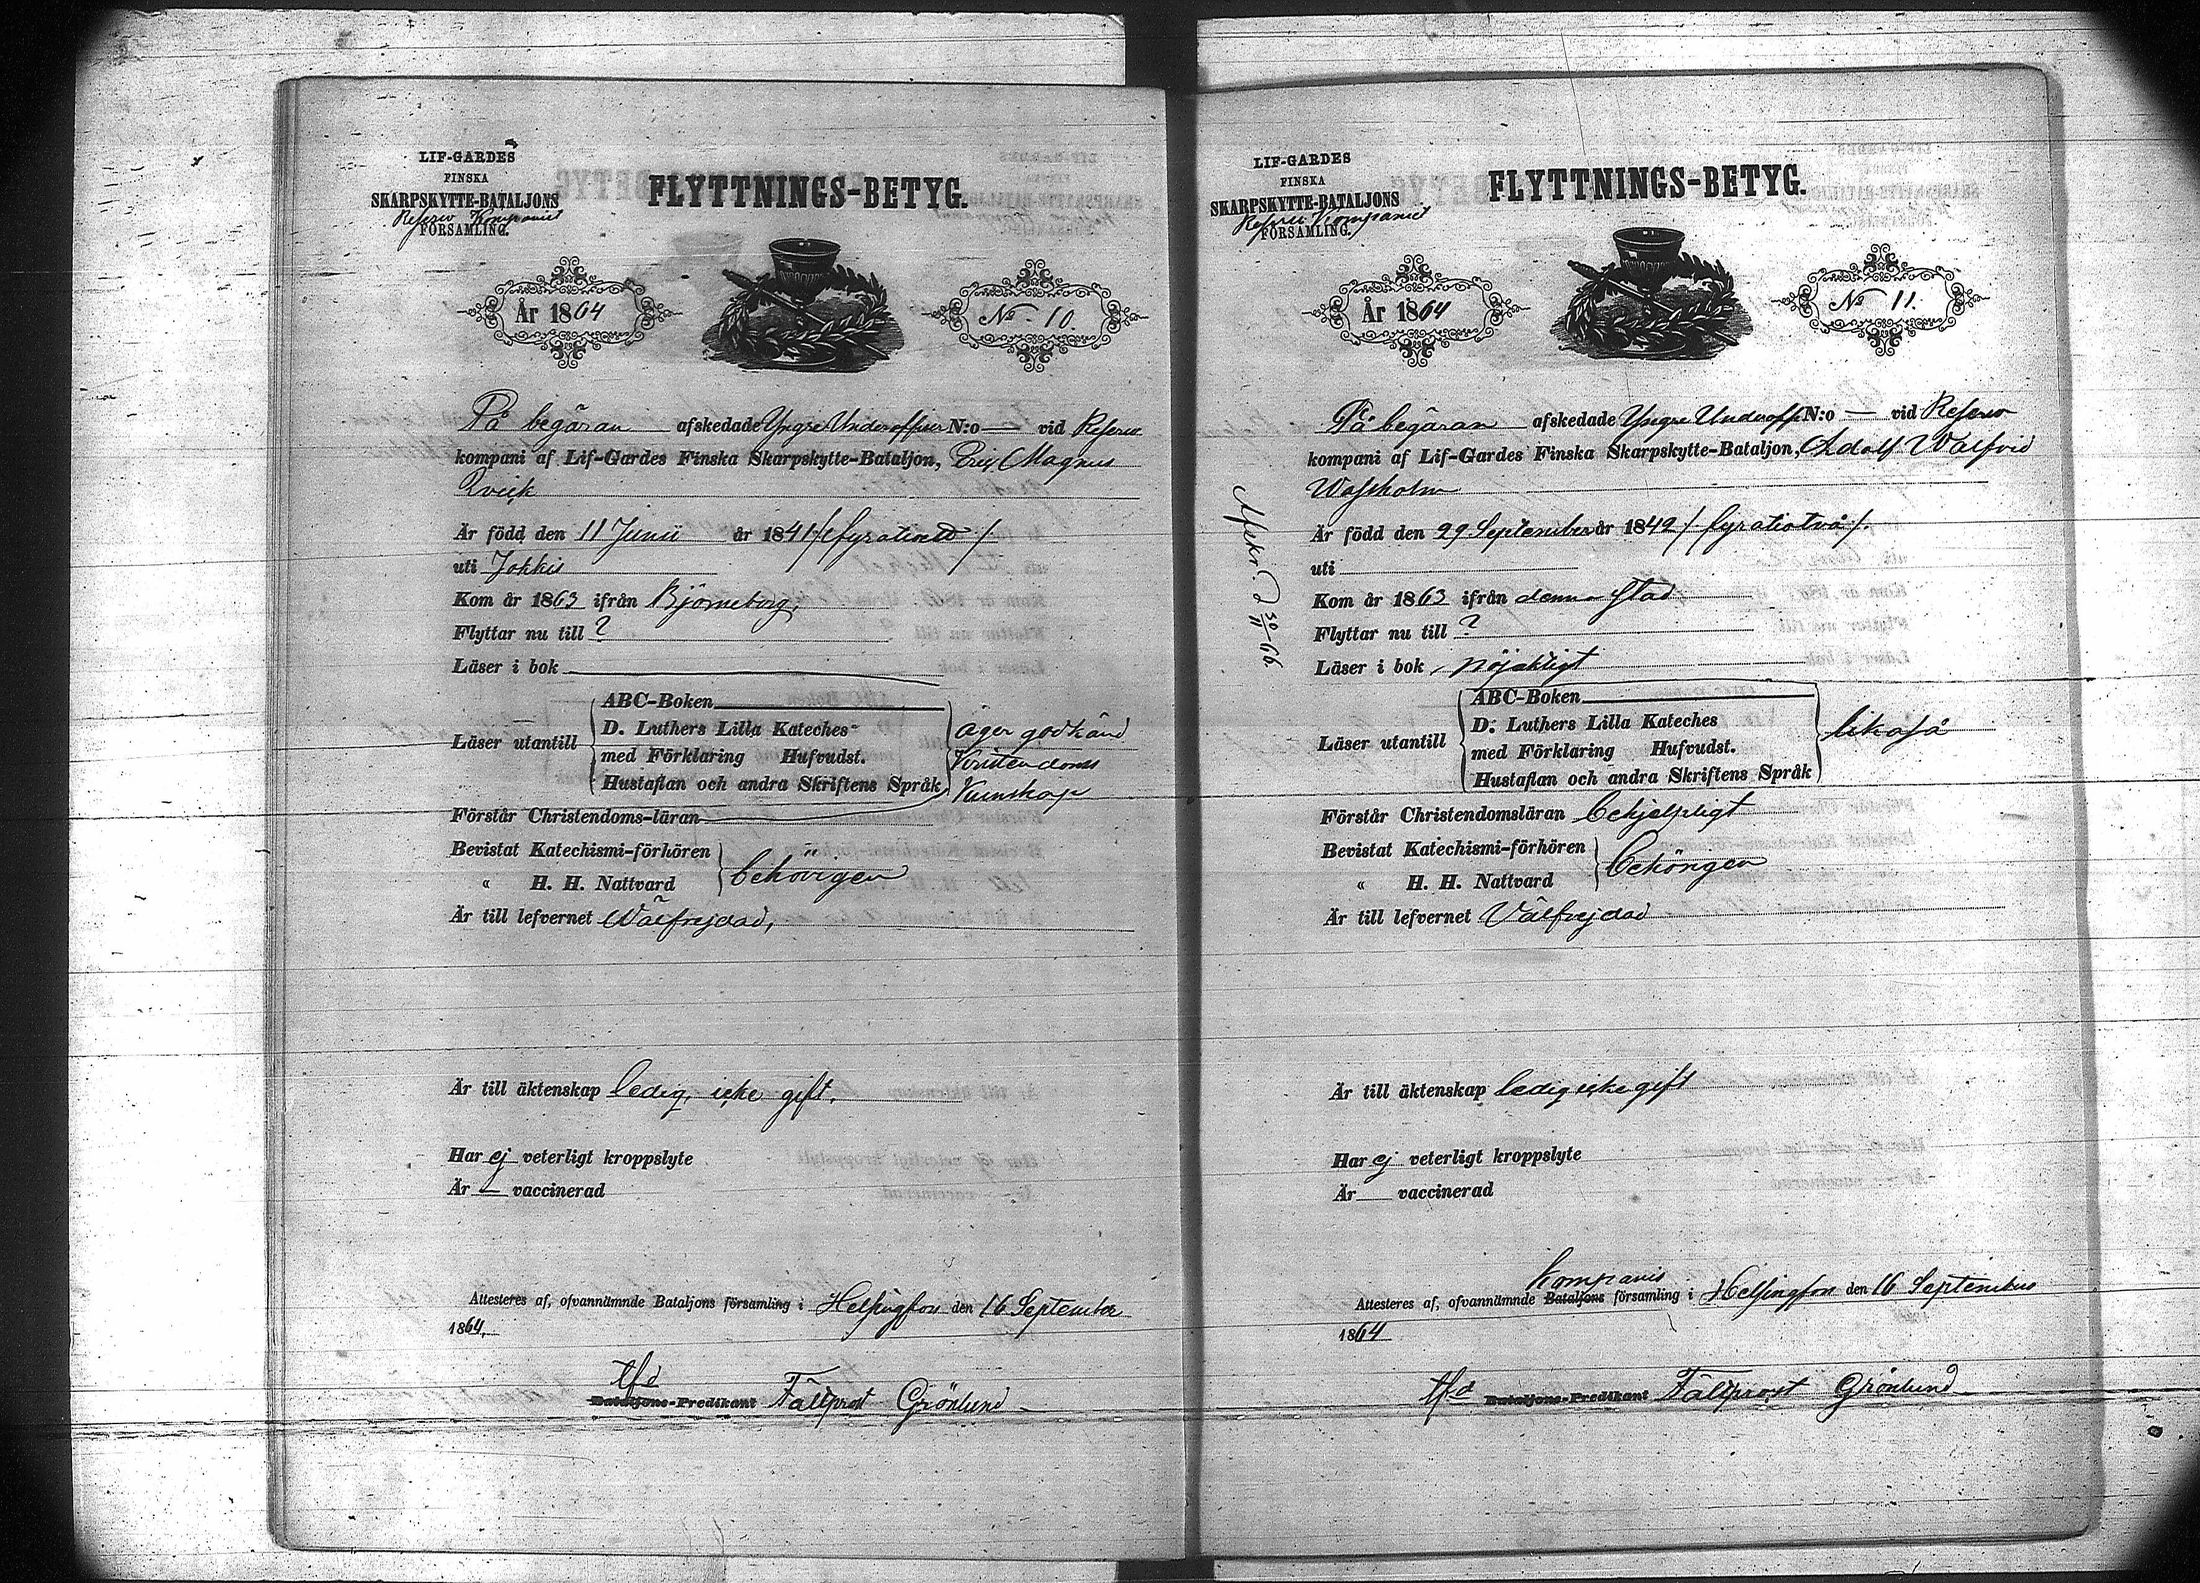 LIF-GARDES
FINSKA
SKARPSKYTTE-BATALJONS
Reserv Kompaniet
FÖRSAMLING.
FLYTTNINGS-BETYG.
År 1864
No 10.
På begäran afskedade Yngre Underofficer N:o — vid Reserv
kompani af Lif-Gardes Finska Skarpskytte-Bataljon, Eric Magnus
Qvick
Är född den 11 Junii år 1841 / fyrationett /
uti Jokkis
Kom år 1863 ifrån Björneborg,
Flyttar nu till ?
Läser i bok
Läser utantill
ABC-Boken
D. Luthers Lilla Kateches
med Förklaring Hufvudst.
Hustaflan och andra Skriftens Språk
äger godkänd
Kristendoms
Kunskap
Förstår Christendoms-läran
Bevistat Katechismi-förhören
" H. H. Nattvard
behörigen
Är till lefvernet Wälfrejdad,
Är till äktenskap ledig, icke gift.
Har ej veterligt kroppslyte
Är — vaccinerad
Attesteres af, ofvannämnde Bataljons församling i Helsingfors den 16 September
1864.
tfd
Bataljons-Predikant Fältprost Grönlund
LIF-GARDES
FINSKA
SKARPSKYTTE-BATALJONS
Reserv Kompaniet
FÖRSAMLING.
FLYTTNINGS-BETYG.
År 1864
No 11.
På begäran afskedade Yngre Underoff N:o — vid Reserv
kompani af Lif-Gardes Finska Skarpskytte-Bataljon, Adolf Walfrid
Wassholm
Är född den 29 September år 1842 / fyratiotvå /.
uti
Kom år 1863 ifrån denna stad
Flyttar nu till ?
Läser i bok nöjaktigt
Läser utantill
ABC-Boken
D. Luthers Lilla Kateches
med Förklaring Hufvudst.
Hustaflan och andra Skriftens Språk
likaså
Förstår Christendomsläran behjelpligt
Bevistat Katechismi-förhören
" H. H. Nattvard
behörigen
Är till lefvernet Välfrejdad
Är till äktenskap ledig icke gift
Har ej veterligt kroppslyte
Är vaccinerad
Kompanis
Attesteres af, ofvannämnde Bataljons församling i Helsingfors den 16 September
1864
tfd Bataljons-Predikant Fältprost Grönlund
Afskr. d 30/11 66.